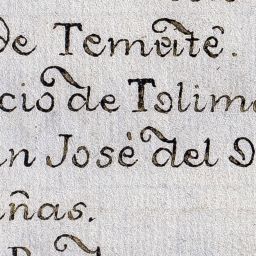 de Temâtê.
cio de Tolim
an Josè del
añas.